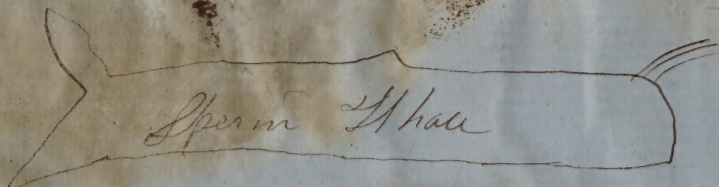 Sperm Whale